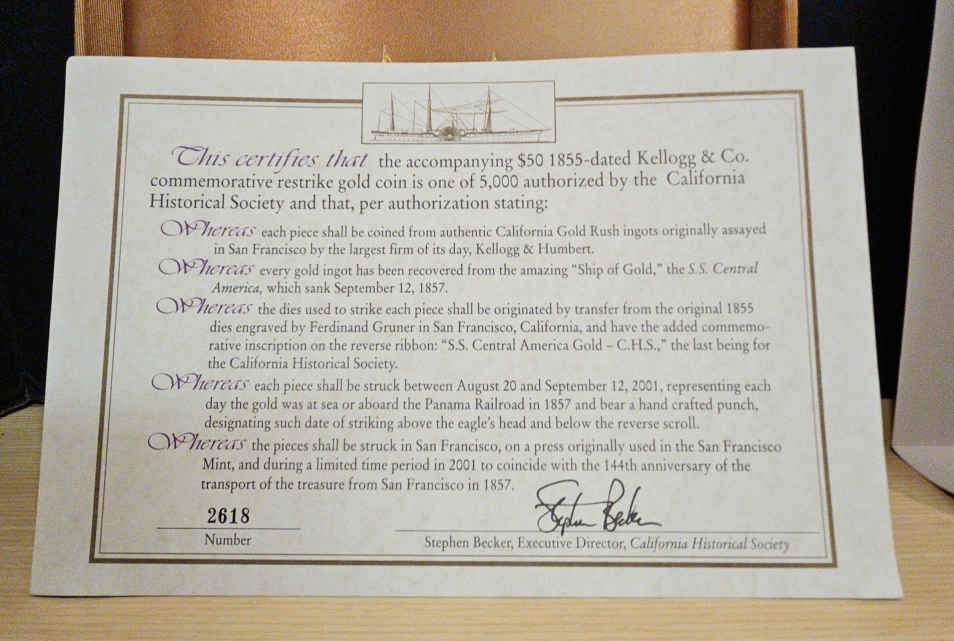 This certifies that the accompanying $50 1855-dated Kellogg & Co.
commemorative restrike gold coin is one of 5,000 authorized by the California
Historical Society and that, per authorization stating:
Whereas each piece shall be coined from authentic California Gold Rush ingots originally assayed
in San Francisco by the largest firm of its day, Kellogg & Humbert.
Whereas every gold ingot has been recovered from the amazing “Ship of Gold,” the S.S. Central
America, which sank September 12, 1857.
Whereas the dies used to strike each piece shall be originated by transfer from the original 1855
dies engraved by Ferdinand Gruner in San Francisco, California, and have the added commemo-
rative inscription on the reverse ribbon: “S.S. Central America Gold – C.H.S.,” the last being for
the California Historical Society.
Whereas each piece shall be struck between August 20 and September 12, 2001, representing each
day the gold was at sea or aboard the Panama Railroad in 1857 and bear a hand crafted punch,
designating such date of striking above the eagle's head and below the reverse scroll.
Whereas the pieces shall be struck in San Francisco, on a press originally used in the San Francisco
Mint, and during a limited time period in 2001 to coincide with the 144th anniversary of the
transport of the treasure from San Francisco in 1857.
Stephen Becker
2618
Number
Stephen Becker, Executive Director, California Historical Society